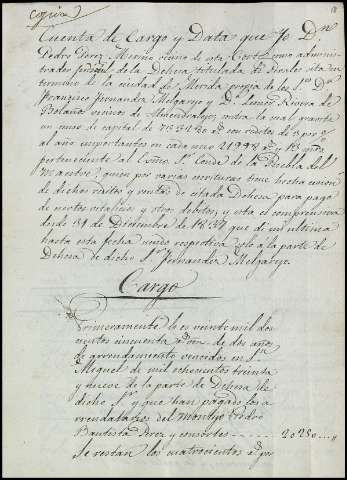 copia
Cuenta de Cargo y Data que yo Dn
Pedro Perez Merino vecino de esta Corte como adminis-
trador judicial de la Dehesa titulada de Rosales sita en
termino de la ciudad de Merida propia de los Sres Dn
Francisco Fernandez Melgarejo y Da Leonor Rivera de
Bolaños vecinos de Almendralejo, contra la cual gravita
un censo de capital de 733280 rs con reditos de 3 por %
al año importantes en cada uno 21998 rs y 13 mrs
perteneciente al Excmo Sr Conde de la Puebla del
Maestre, quien por varias escrituras tiene hecha cesion
de dichos reditos y rentas de citada Dehesa para pago
de rentas vitalicias y otros debitos, y esta es comprensiva
desde 31 de Diciembre de 1837 que di mi ultima
hasta esta fecha siendo respectiva solo á la parte de
Dehesa de dicho Sr Fernandez Melgarejo.
Cargo
Primeramente lo es veinte mil dos
cientos cincuenta rs vn de dos años
de arrendamiento vencidos en Sn
Miguel de mil ochocientos treinta
y nueve de la parte de Dehesa de
dicho Sr y que han pagado los a-
rrendatarios del Montijo Pedro
Bautista Perez y consortes 20250
Se restan los cuatrocientos rs por